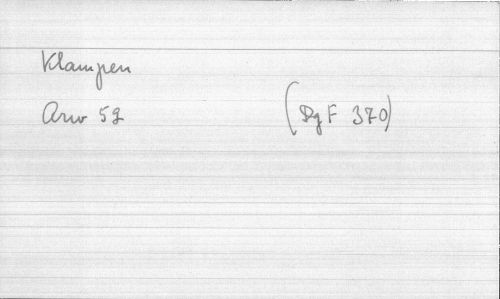 Klampen
Arw 59 (DgF 370)